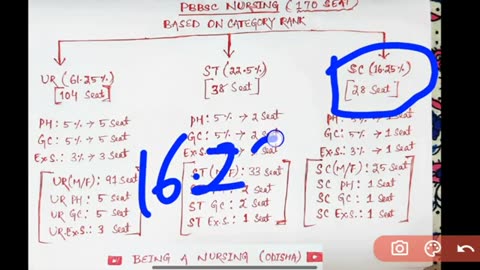 PBBSC NURSING (170 SEAT)
BASED ON CATEGORY RANK
UR (61.25%)
[104 Seat]
PH: 5% → 5 Seat
GC: 5% → 5 Seat
Ex.S.: 3% → 3 Seat
UR(M/F): 91 Seat
UR PH: 5 Seat
UR GC: 5 Seat
UR Ex.S.: 3 Seat
ST (22.5%)
[38 Seat]
PH: 5% → 2 Seat
GC: 5% → 2
Ex.S
ST (M/F): 33 Seat
2 Seat
ST GC: 2 Seat
ST Ex.S.: 1 Seat
SC (16.25%)
[28 Seat]
PH: 5% → 1 Seat
GC: 5% → 1 Seat
Ex.S.: 3% → 1 Seat
SC(M/F): 25 Seat
SC PH: 1 Seat
SC GC: 1 Seat
SC Ex.S.: 1 Seat
16.2
BEING A NURSING (ODISHA)